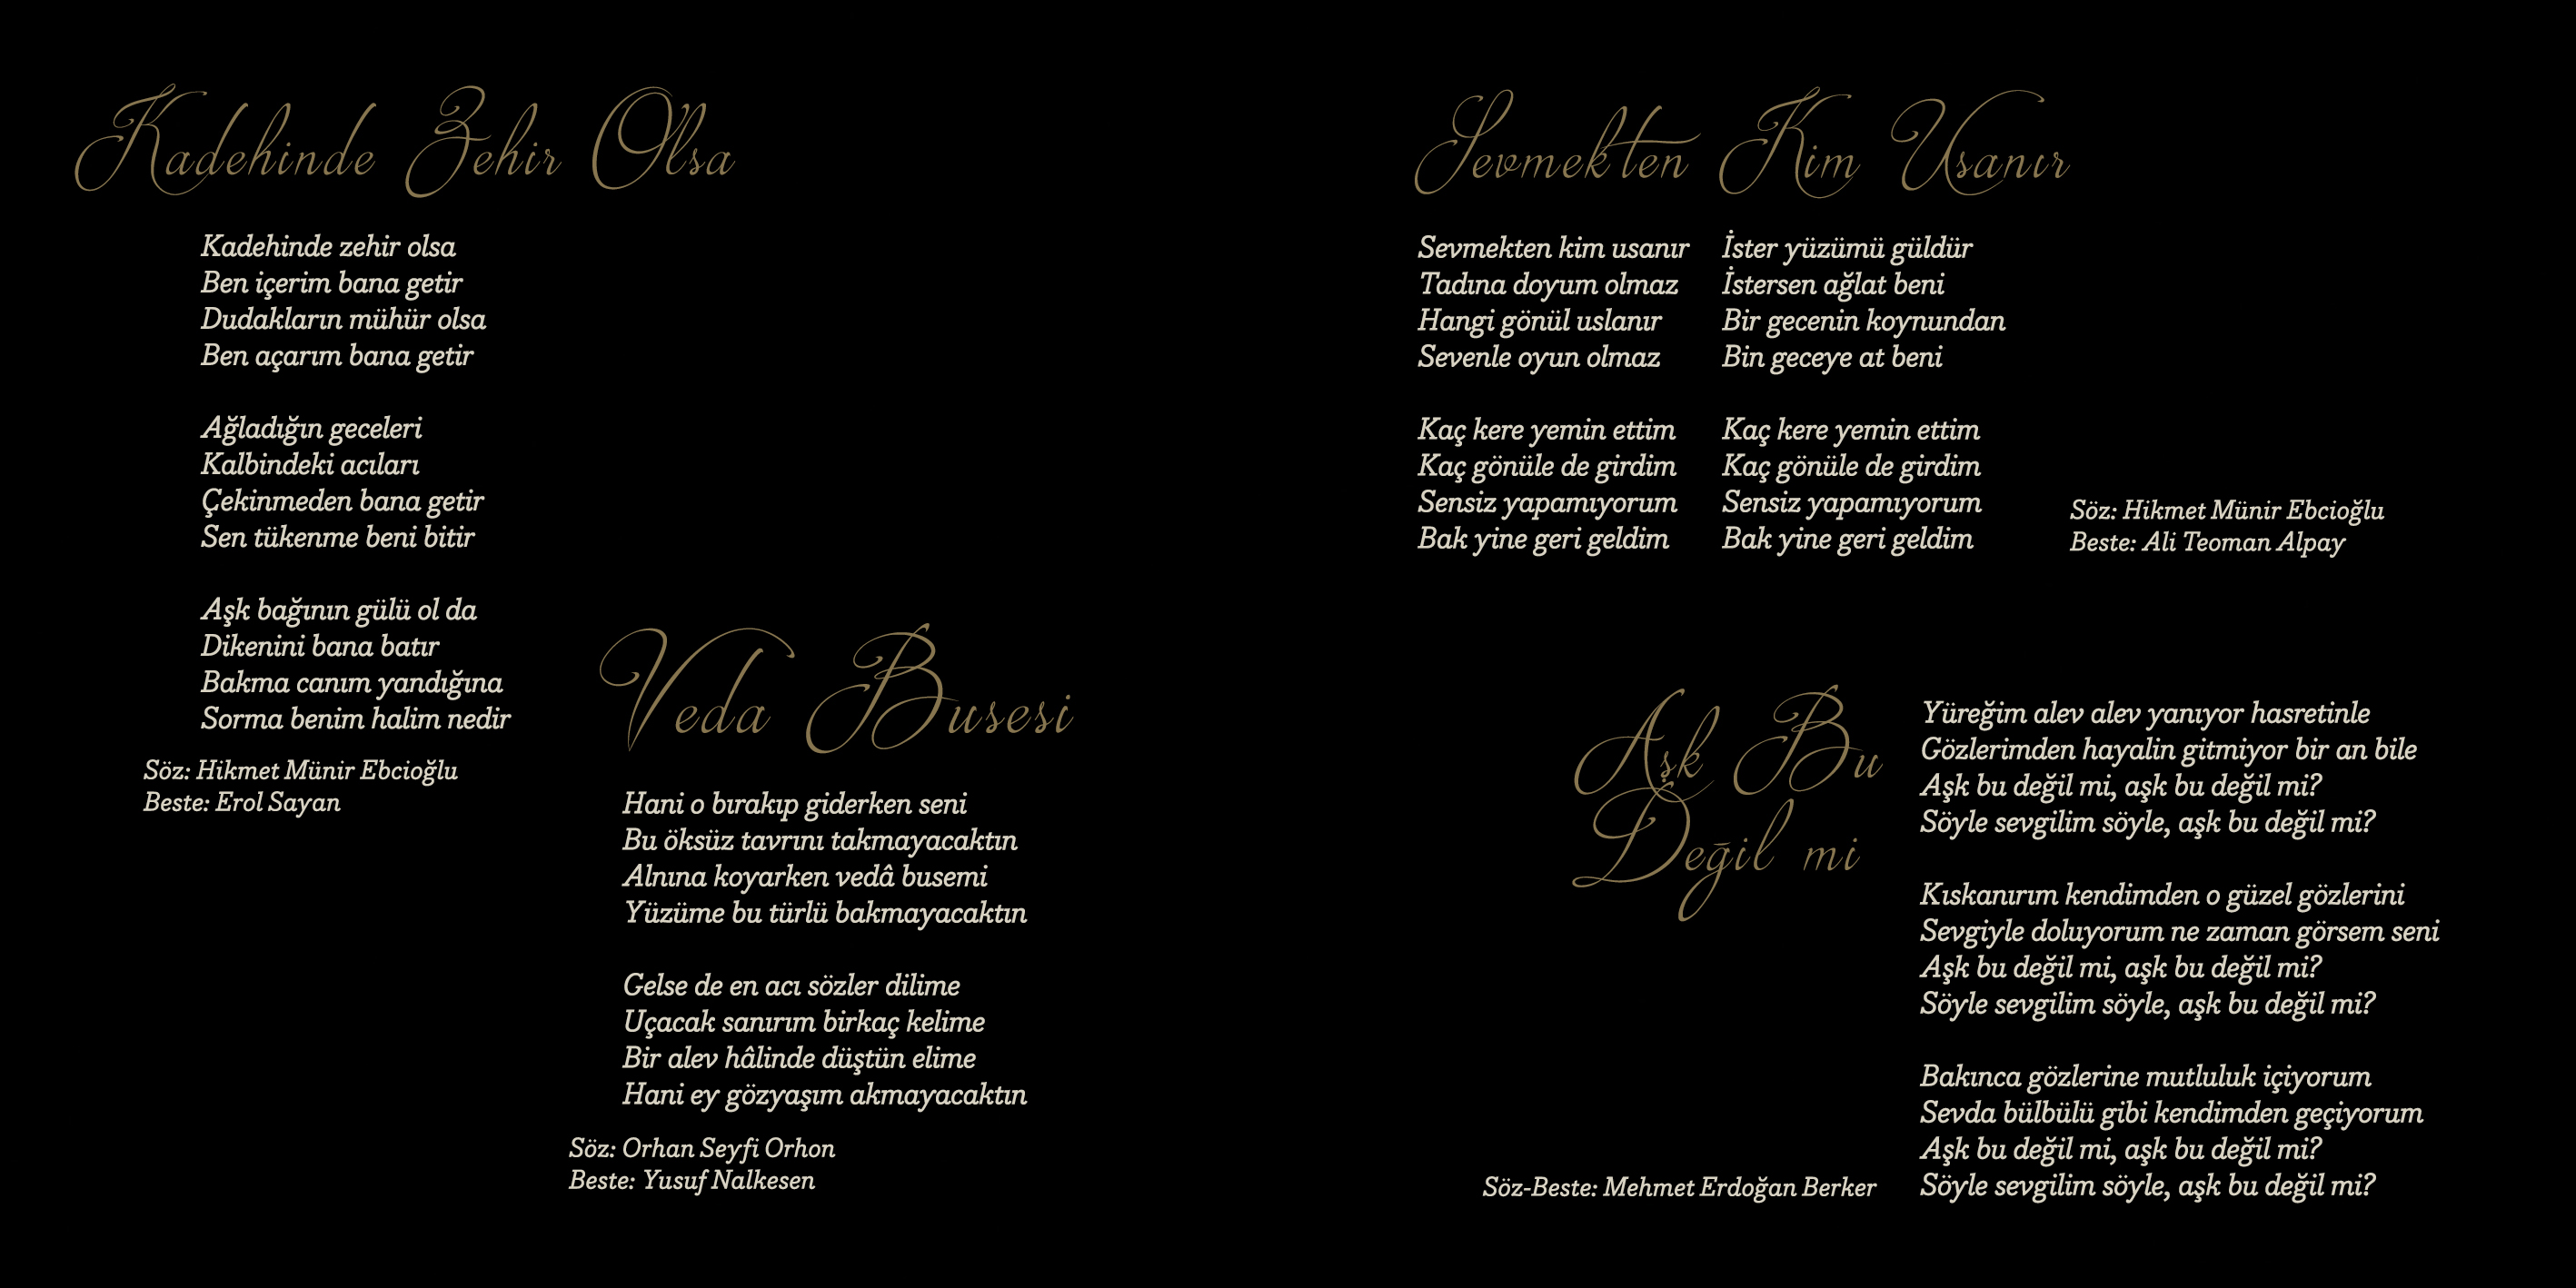 Kadehinde Zehir Olsa
Kadehinde zehir olsa
Ben içerim bana getir
Dudakların mühür olsa
Ben açarım bana getir
Ağladığın geceleri
Kalbindeki acıları
Çekinmeden bana getir
Sen tükenme beni bitir
Aşk bağının gülü ol da
Dikenini bana batır
Bakma canım yandığına
Sorma benim halim nedir
Söz: Hikmet Münir Ebcioğlu
Beste: Erol Sayan
Veda Busesi
Hani o bırakıp giderken seni
Bu öksüz tavrını takmayacaktın
Alnına koyarken vedâ busemi
Yüzüme bu türlü bakmayacaktın
Gelse de en acı sözler dilime
Uçacak sanırım birkaç kelime
Bir alev hâlinde düştün elime
Hani ey gözyaşım akmayacaktın
Söz: Orhan Seyfi Orhon
Beste: Yusuf Nalkesen
Sevmekten Kim Usanır
Sevmekten kim usanır
Tadına doyum olmaz
Hangi gönül uslanır
Sevenle oyun olmaz
Kaç kere yemin ettim
Kaç gönüle de girdim
Sensiz yapamıyorum
Bak yine geri geldim
İster yüzümü güldür
İstersen ağlat beni
Bir gecenin koynundan
Bin geceye at beni
Kaç kere yemin ettim
Kaç gönüle de girdim
Sensiz yapamıyorum
Bak yine geri geldim
Söz: Hikmet Münir Ebcioğlu
Beste: Ali Teoman Alpay
Aşk Bu
Değil mi
Yüreğim alev alev yanıyor hasretinle
Gözlerimden hayalin gitmiyor bir an bile
Aşk bu değil mi, aşk bu değil mi?
Söyle sevgilim söyle, aşk bu değil mi?
Kıskanırım kendimden o güzel gözlerini
Sevgiyle doluyorum ne zaman görsem seni
Aşk bu değil mi, aşk bu değil mi?
Söyle sevgilim söyle, aşk bu değil mi?
Bakınca gözlerine mutluluk içiyorum
Sevda bülbülü gibi kendimden geçiyorum
Aşk bu değil mi, aşk bu değil mi?
Söyle sevgilim söyle, aşk bu değil mi?
Söz-Beste: Mehmet Erdoğan Berker